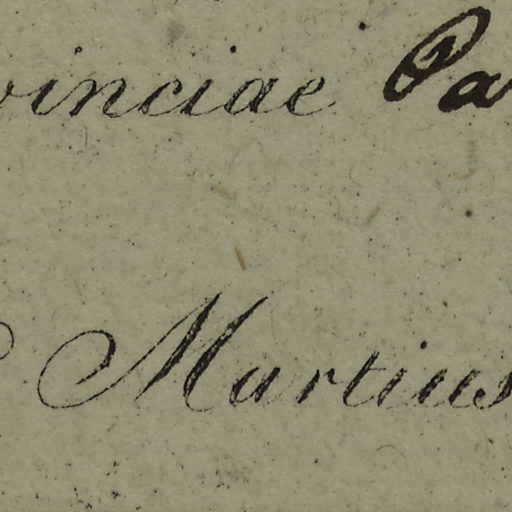 vinciae Pa
Martius